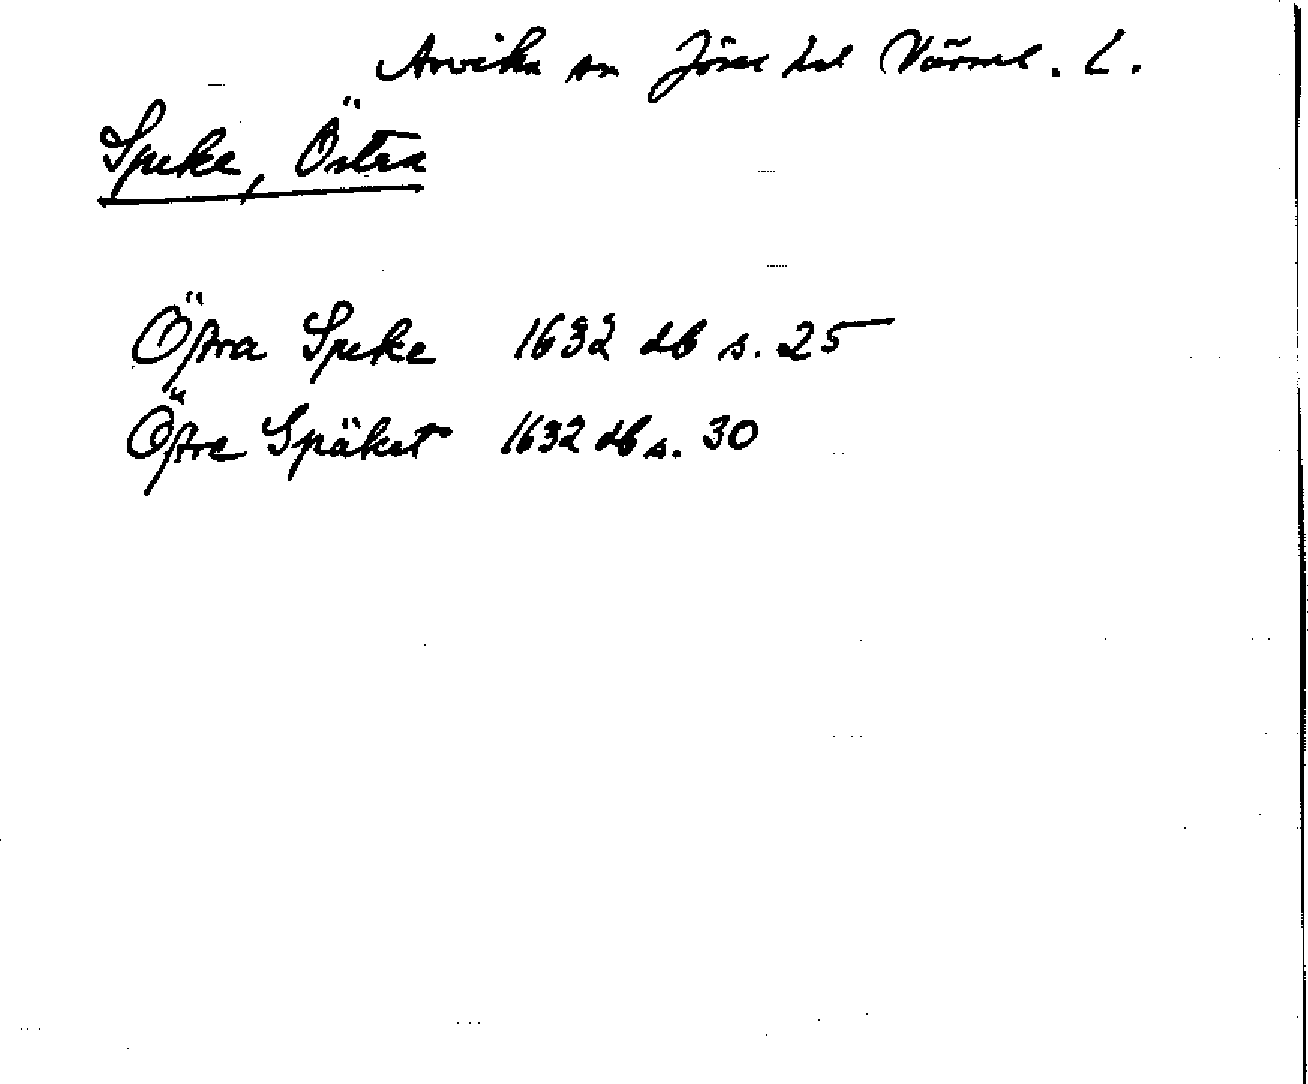 Arvika sn Jösse hd Värml. L.
Speke, Östra
Östra Speke 1632 db s. 25
Östre Späket 1632 db s. 30